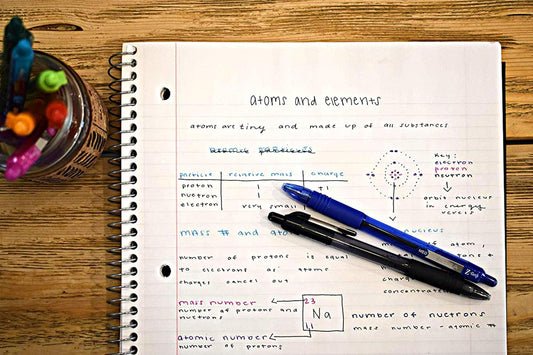 atoms and elements
atoms are tiny and made up of all substances
particle relative mass charge
proton 1 +1
nuetron 1
electron very small
Key:
electron
proton
neutron
orbit nucleus
in energy
levels
mass # and
nucleus
of atom,
number of protons is equal
to electrons so atoms
charges cancel out
concentrated
mass number
number of protons and
nuetrons
23
Na
11
atomic number
number of protons
number of nuetrons
mass number - atomic #